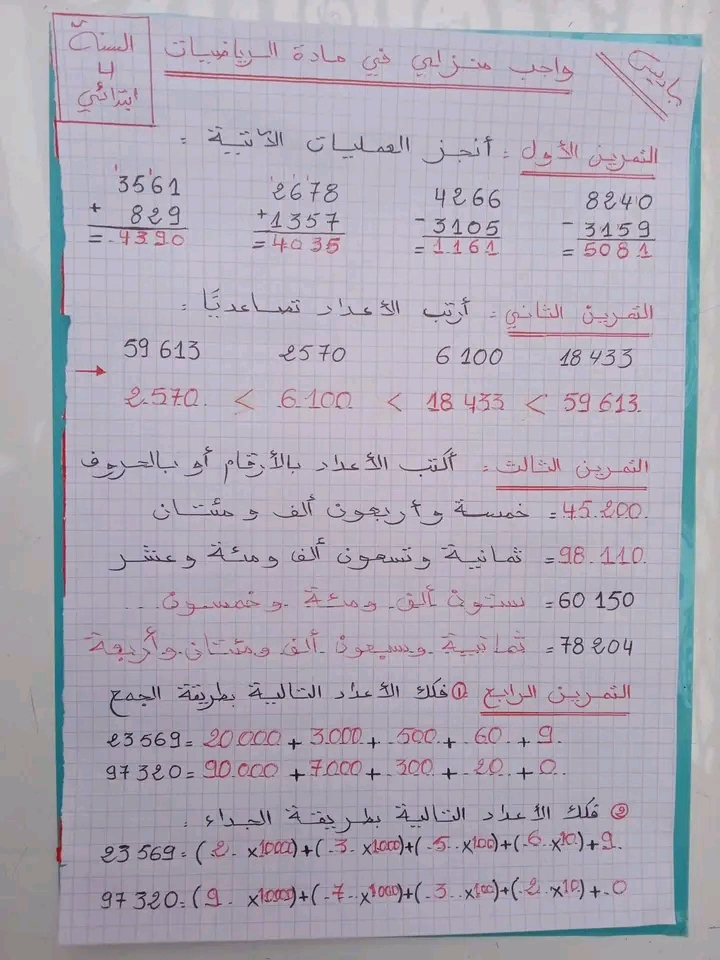 السنة
4
ابتدائي
واجب منزلي في مادة الرياضيات
التمرين الأول : أنجز العمليات الآتية :
3561 + 829 = 4390
2678 + 1357 = 4035
4266 - 3105 = 1161
8240 - 3159 = 5081
التمرين الثاني : أرتب الأعداد تصاعديًا :
59 613 2570 6 100 18 433
2.570 < 6.100 < 18 433 < 59 613
التمرين الثالث : أكتب الأعداد بالأرقام أو بالحروف
45.200 = خمسة وأربعون ألف و مئتان
98.110 = ثمانية وتسعون ألف ومئة وعشر
60 150 = ستون ألف ومئة وخمسون
78 204 = ثمانية وسبعون ألف ومئتان وأربعة
التمرين الرابع ① فكك الأعداد التالية بطريقة الجمع
23 569 = 20.000 + 3.000 + 500 + 60 + 9
97 320 = 90.000 + 7.000 + 300 + 20 + 0
② فكك الأعداد التالية بطريقة الجداء :
23 569 = (2 x 10000) + (3 x 1000) + (5 x 100) + (6 x 10) + 9
97 320 = (9 x 1000) + (7 x 1000) + (3 x 100) + (2 x 10) + 0